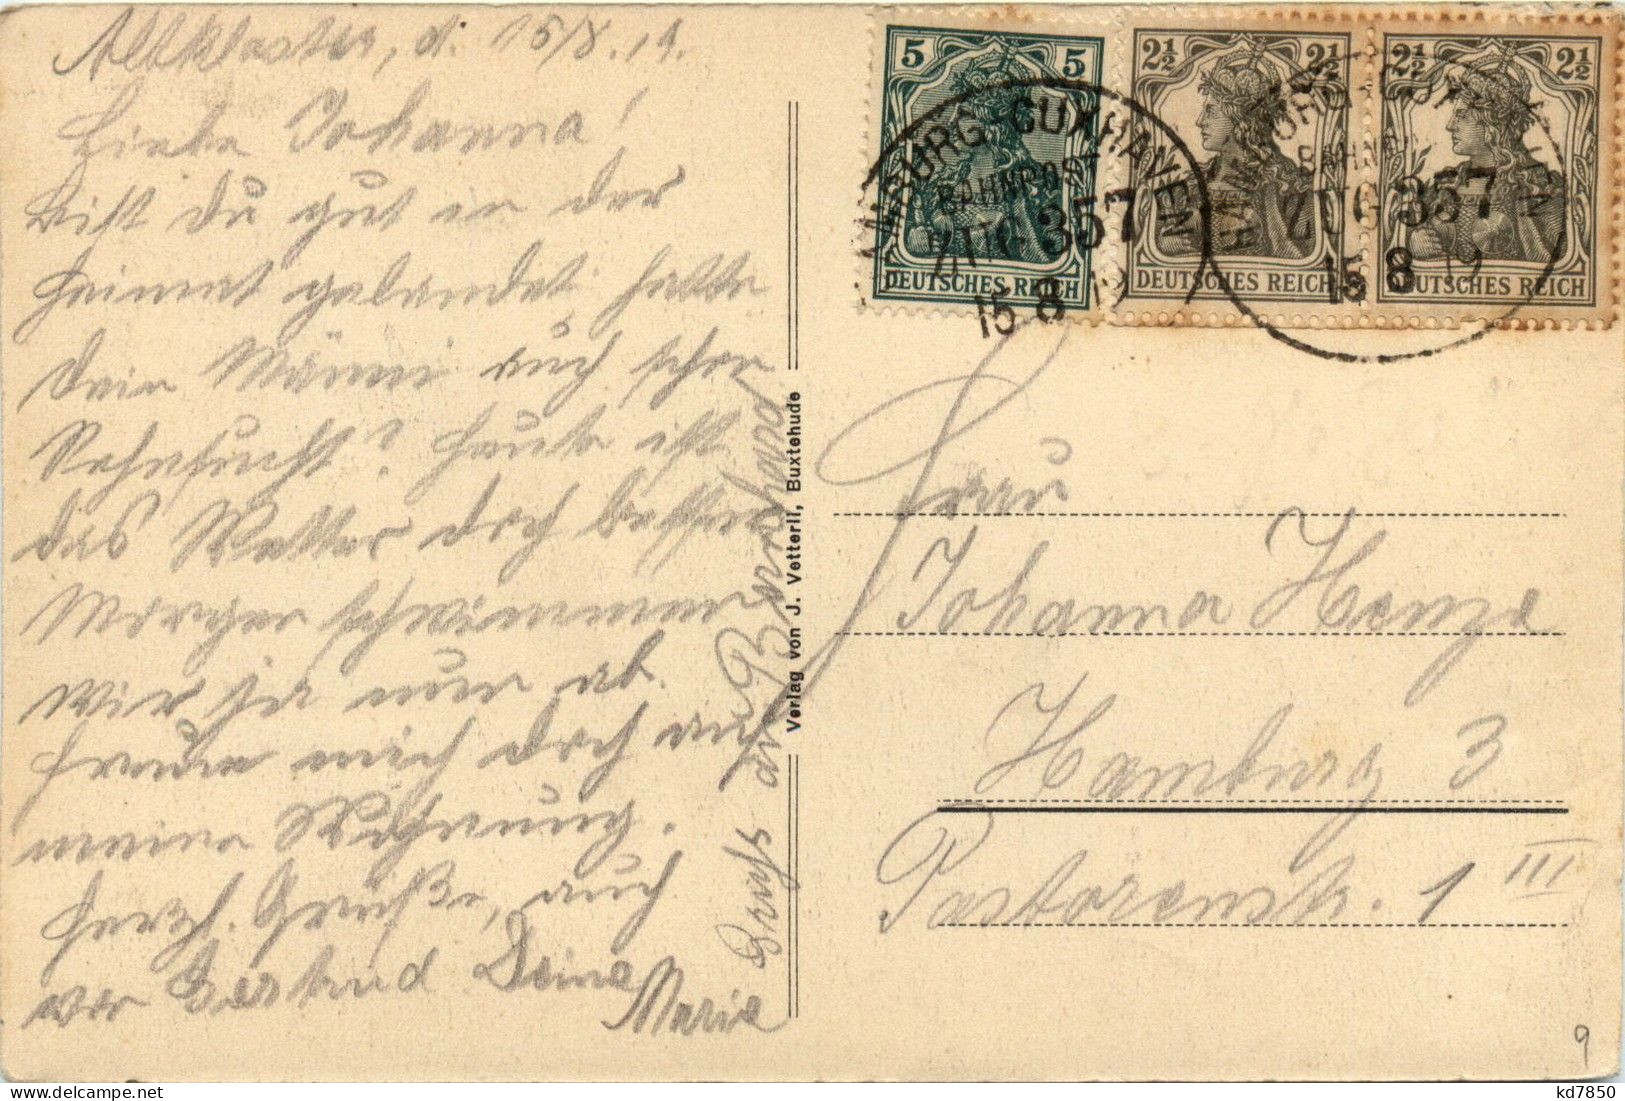 Altkloster, d. 15/8. 19.
Liebe Johanna!
Bist Du gut in der
Heimat gelandet hatte
Dein Männi auch schon
Sehnsucht? Heute ist
das Wetter doch besser
Morgen schwimmen
wir ja nun ab.
Freue mich doch auf
meine Wohnung.
Herzl. Grüße, auch
von Gertrud Deine
Marie
Gruß an Bernhard
Verlag von J. Vetterli, Buxtehude
5 5
DEUTSCHES REICH
2½ 2½
DEUTSCHES REICH
2½ 2½
DEUTSCHES REICH
HAMBURG-CUXHAVEN
BAHNPOST
ZUG 357
15 8 19
HAMBURG-CUXHAVEN
BAHNPOST
ZUG 357
15 8 19
Frau
Johanna Henze
Hamburg 3
Pastorenstr. 1 III
9
kd7850